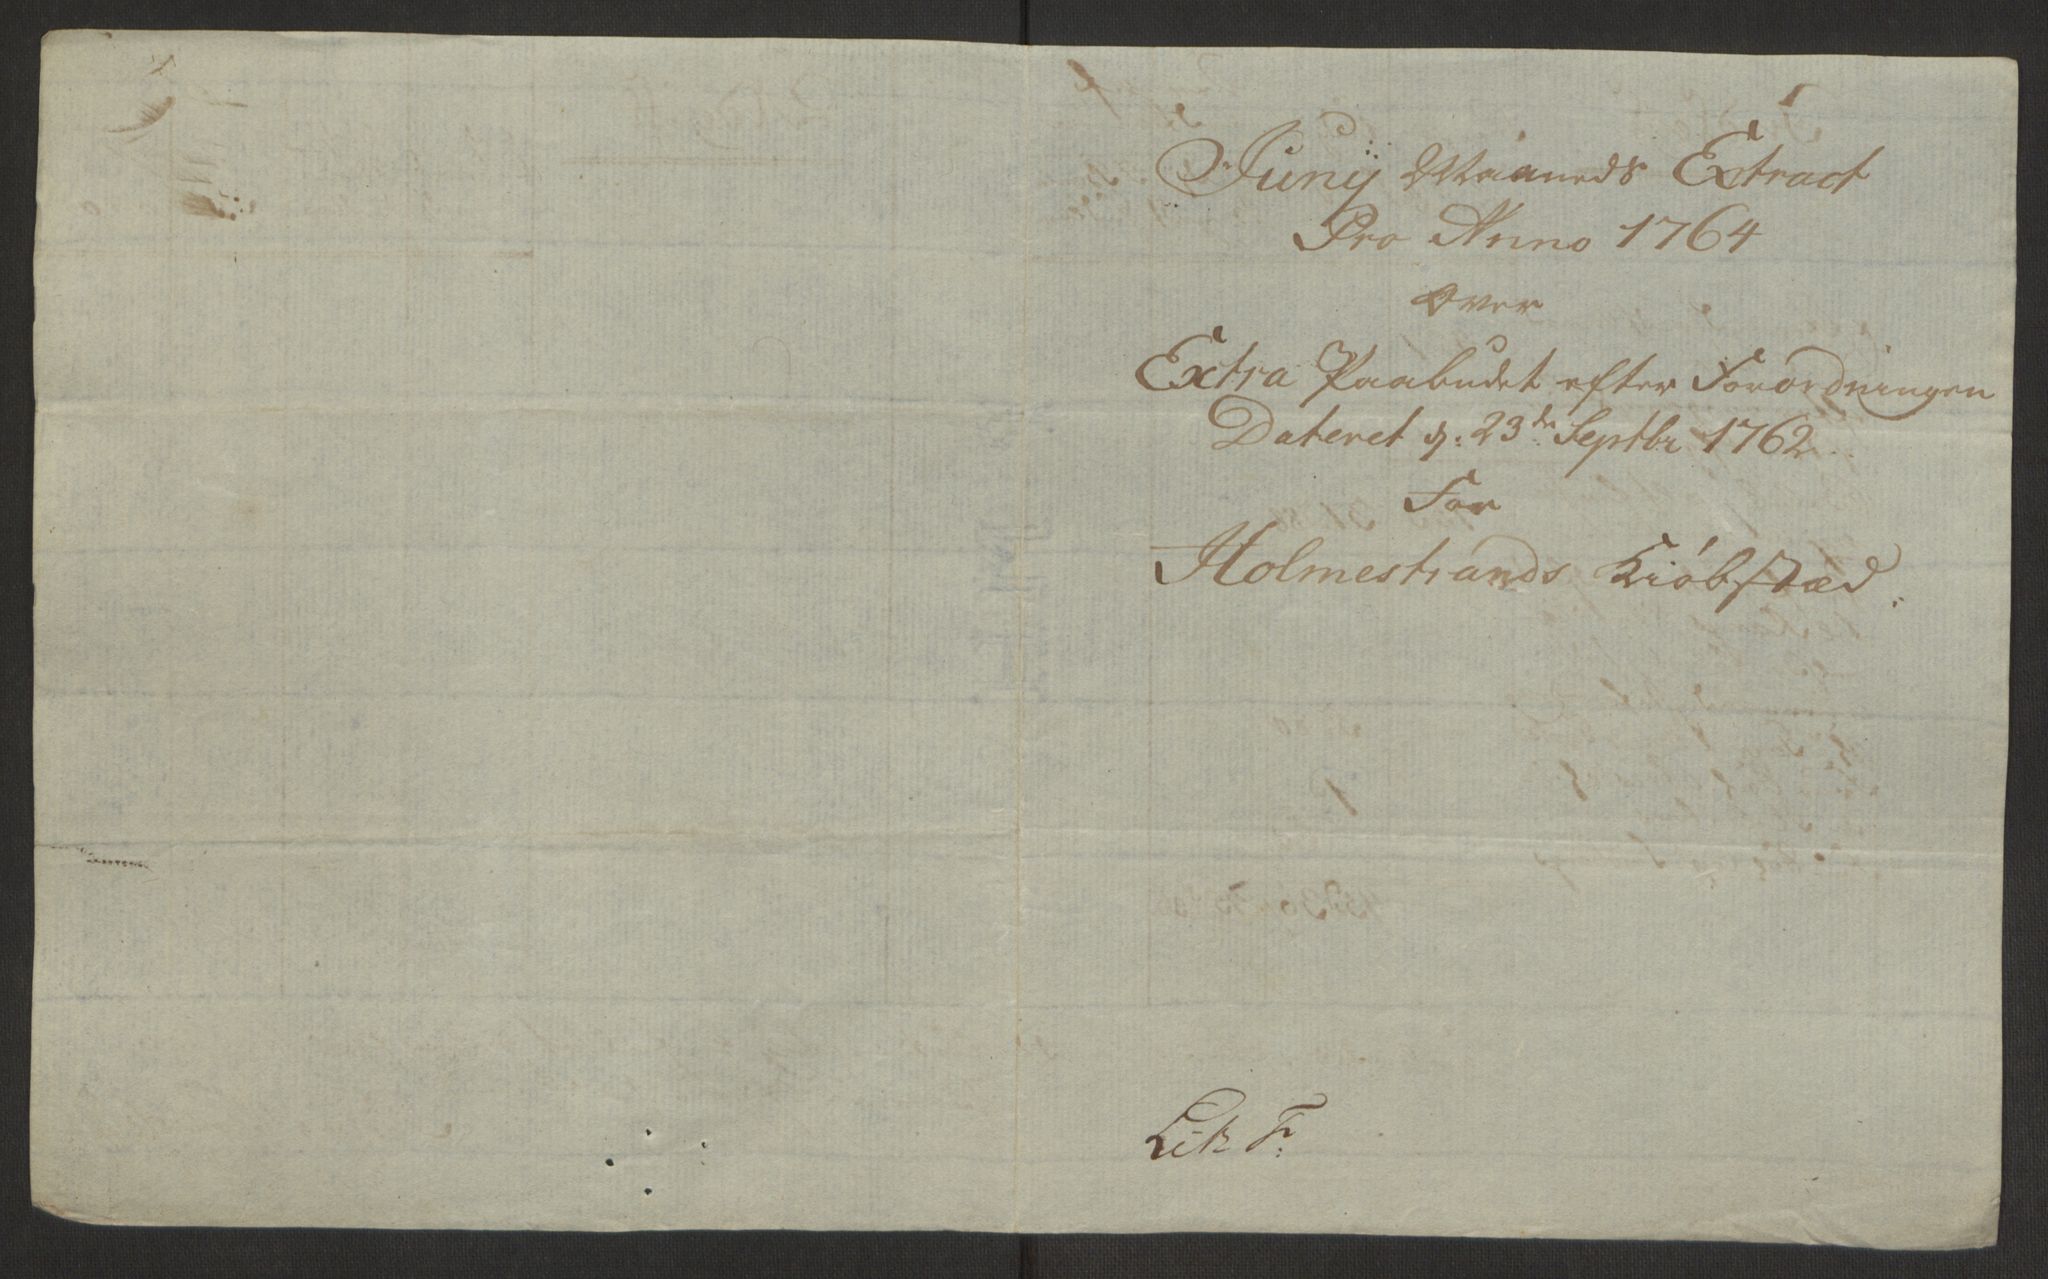 Junij Maaneds Extract
Pro Anno 1764
Over
Extra Paabudet efter Forordningen
Dateret d: 23de Septbr 1762
For
Holmestrands Kiöbstæd.
Litr F: